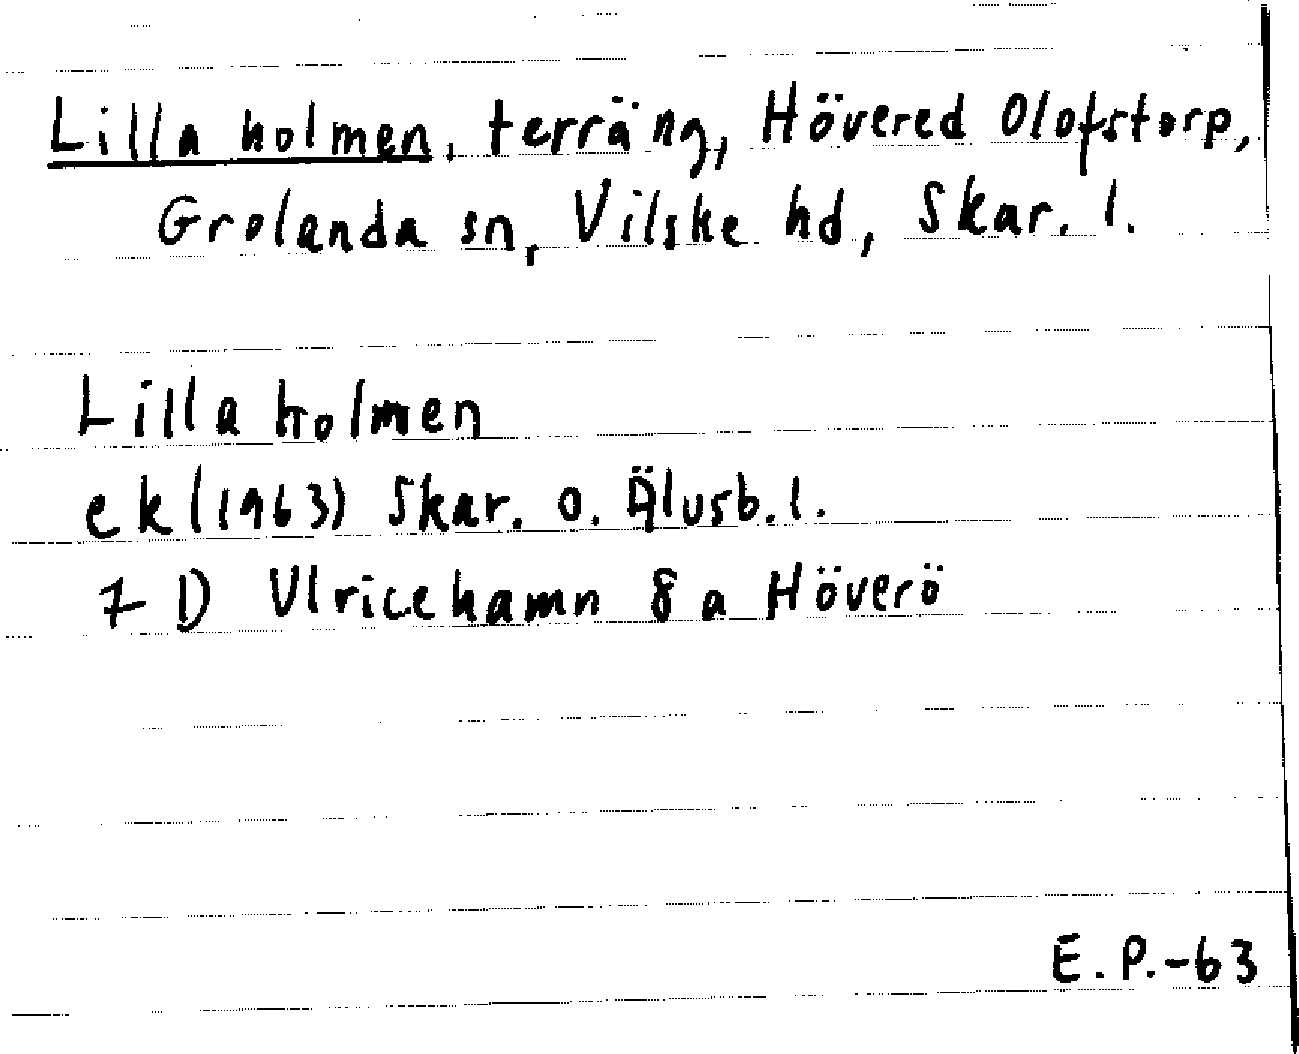 Lilla holmen, terräng, Hövered Olofstorp,
Grolanda sn, Vilske hd, Skar. l.
Lilla holmen
ek (1963) Skar. o. Älvsb. l.
7 D Ulricehamn 8 a Höverö
E. P. -63